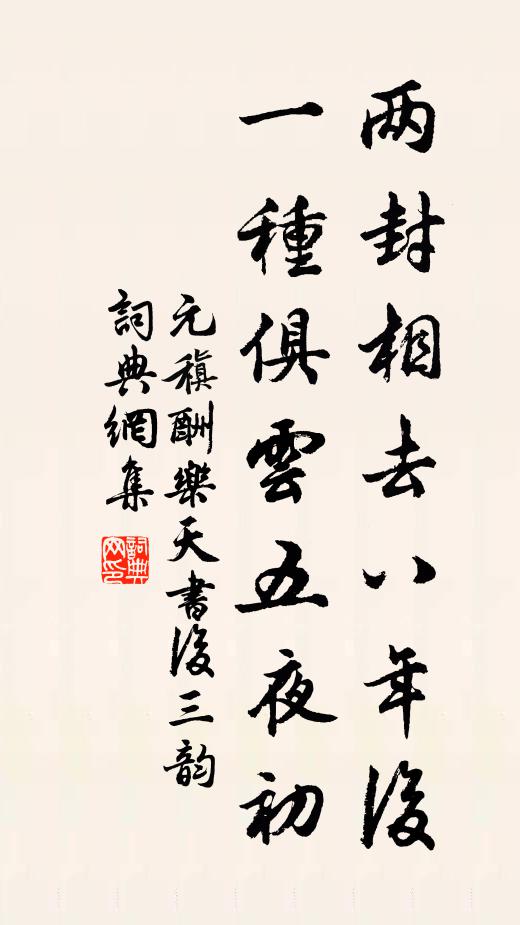 两封相去八年後
一種俱雲五夜初
元稹酬樂天書後三韵
詞典網集
詞典網印